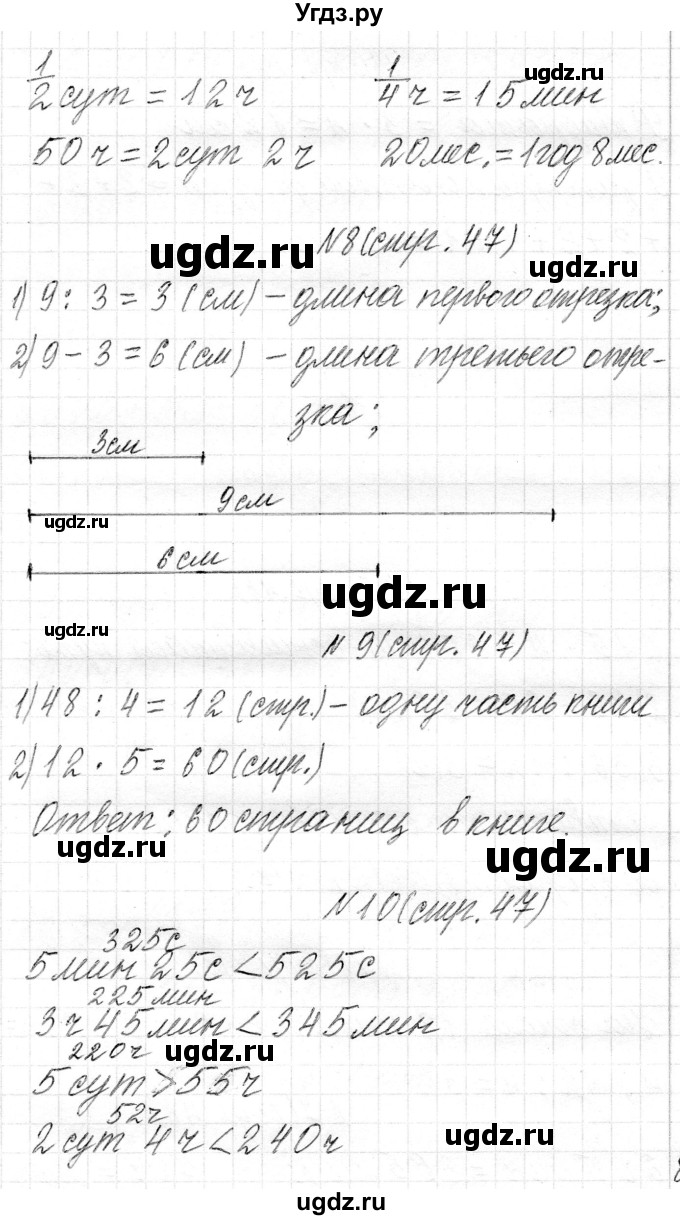 Угдз.ру
1/2 сут = 12 ч 1/4 ч = 15 мин
ugdz.ru
50 ч = 2 сут 2 ч 20 мес. = 1 год 8 мес.
ugdz.ru
№8 (стр. 47)
ugdz.ru
1) 9 : 3 = 3 (см) – длина первого отрезка;
2) 9 – 3 = 6 (см) – длина третьего отре-
зка;
3 см
9 см
ugdz.ru
6 см
ugdz.ru
ugdz.ru
№ 9 (стр. 47)
1) 48 : 4 = 12 (стр.) – одну часть книги
2) 12 · 5 = 60 (стр.)
Ответ: 60 страниц в книге.
ugdz.ru
ugdz.ru
№10 (стр. 47)
325 с
5 мин 25 с < 525 с
225 мин
3 ч 45 мин < 345 мин
220 ч
ugdz.ru
5 сут > 55 ч
52 ч
2 сут 4 ч < 240 ч
ugdz.ru
ugdz.ru